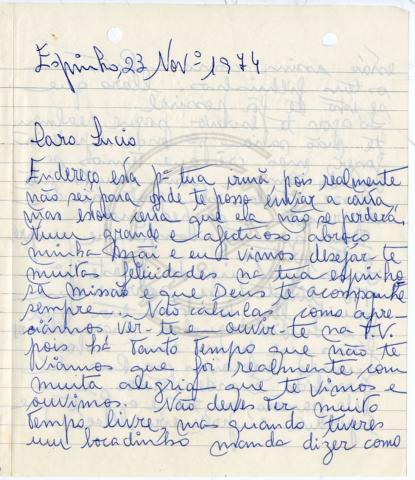 Espinho, 23 Novº 1974
Caro Lucio
Endereço esta pª tua irmã, pois realmente
não sei para onde te posso enviar a carta
mas estou certa que ela não se perderá.
Num grande e afectuoso abraço
minha Mãi e eu vimos desejar-te
muitas felicidades na tua espinho-
sa missão e que Deus te acompanhe
sempre. Não calculas como apre-
ciámos ver-te e ouvir-te na T.V.
pois há tanto tempo que não te
viamos que foi realmente com
muita alegria que te vimos e
ouvimos. Não deves ter muito
tempo livre, mas quando tiveres
um bocadinho manda dizer como